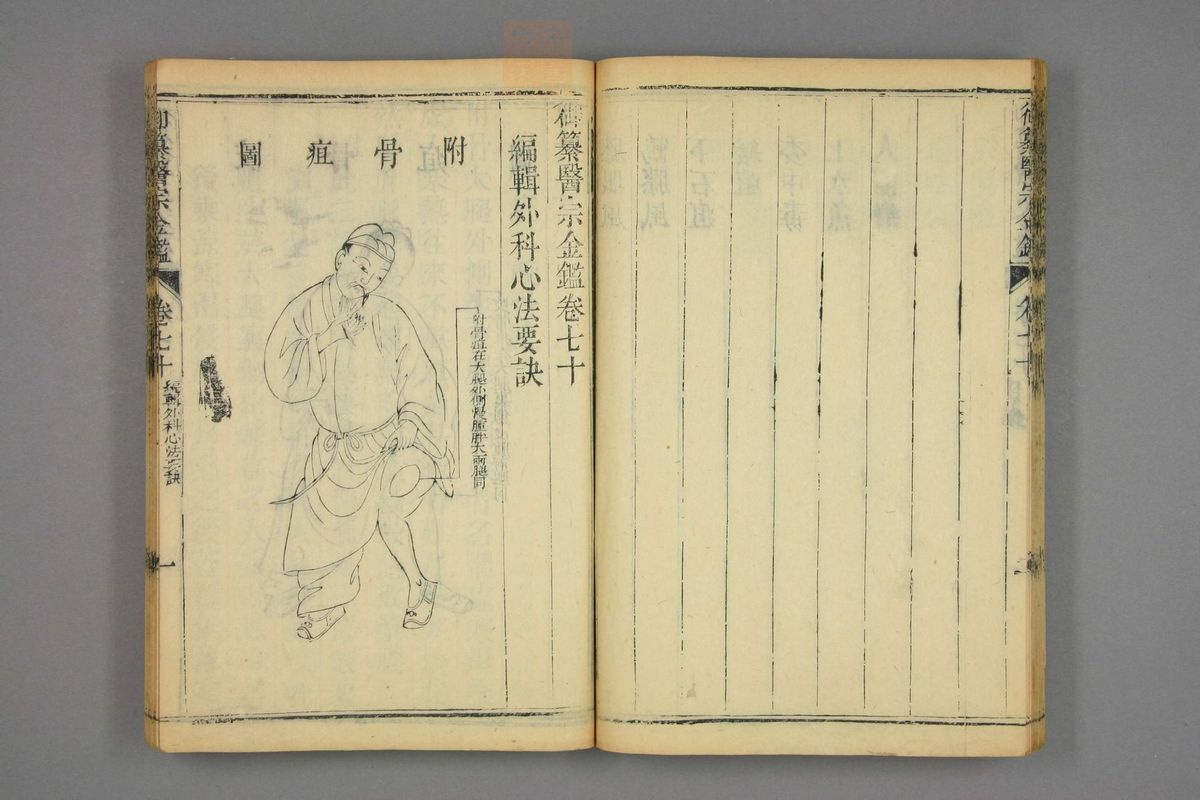 御纂醫宗金鑑
卷七十
御纂醫宗金鑑卷七十
編輯外科心法要訣
附骨疽圖
附骨疽在大腿外側漫腫胖大兩腿同
御纂醫宗金鑑
卷七十
編輯外科心法要訣
一